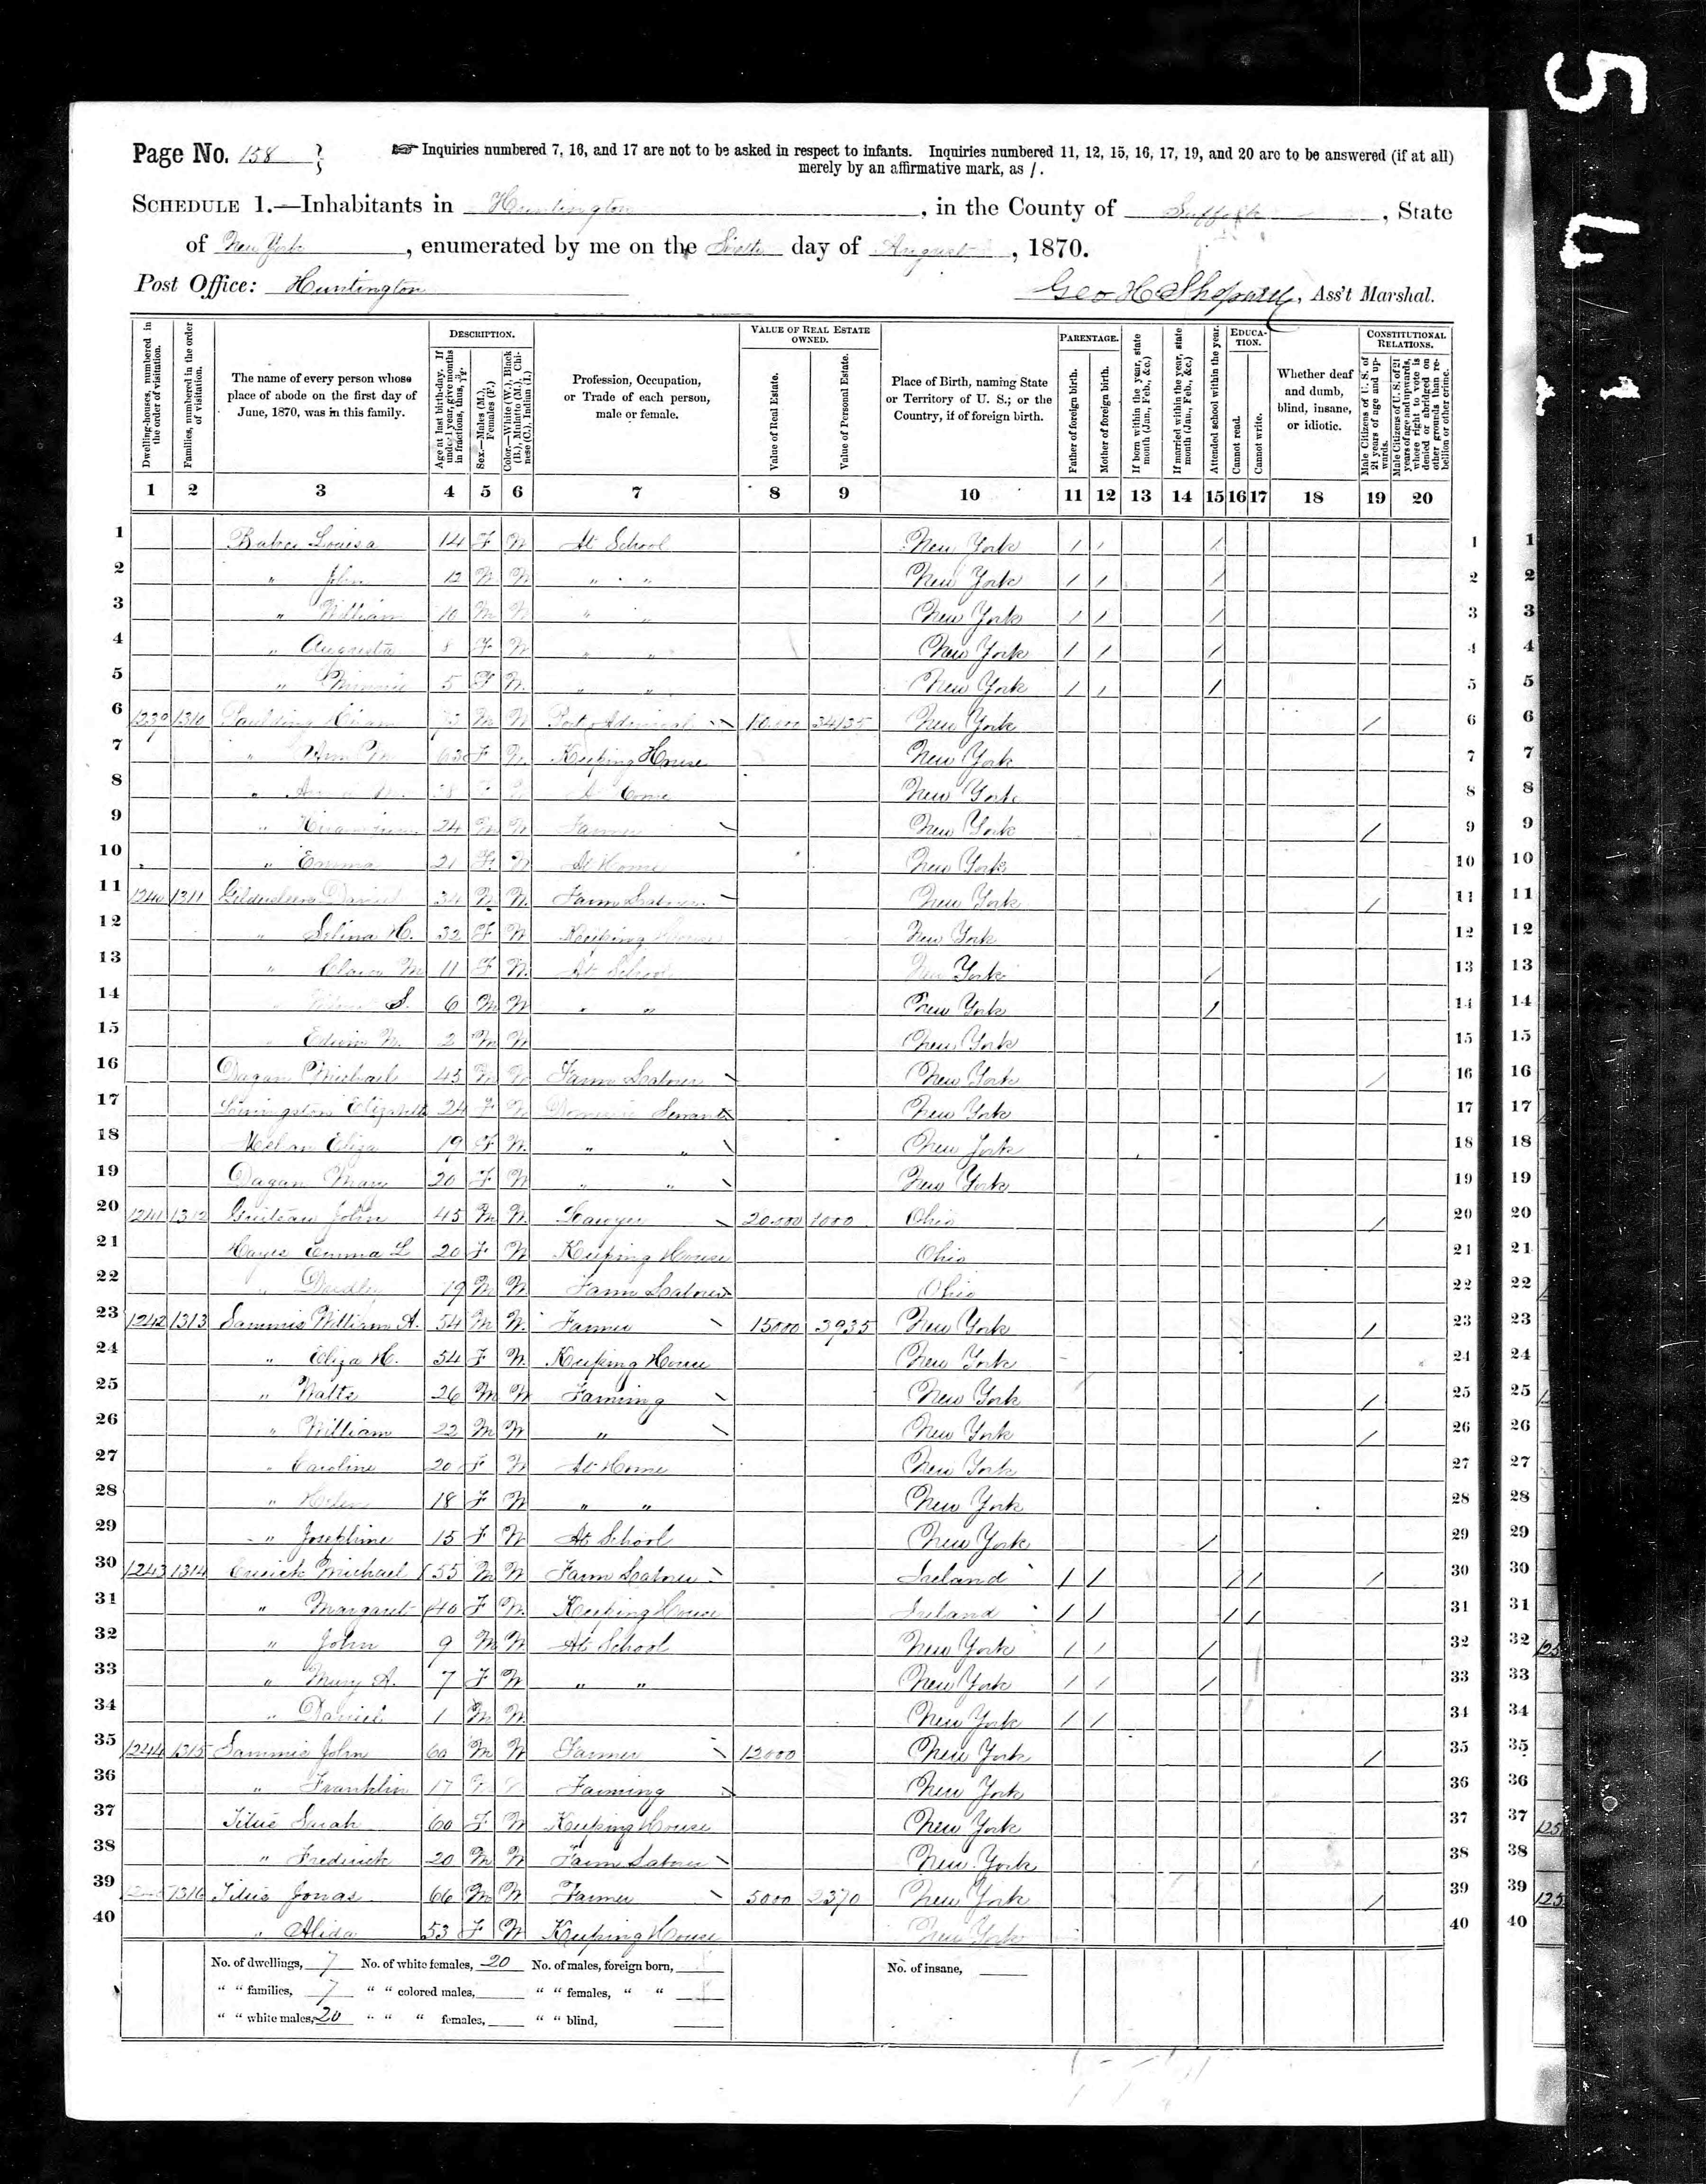 Page No. 158
☞ Inquiries numbered 7, 16, and 17 are not to be asked in respect to infants. Inquiries numbered 11, 12, 15, 16, 17, 19, and 20 are to be answered (if at all)
merely by an affirmative mark, as /.
SCHEDULE 1.—Inhabitants in Huntington, in the County of Suffolk, State
of New York, enumerated by me on the Sixth day of August, 1870.
Post Office: Huntington
Geo H Shepard, Ass't Marshal.
Dwelling-houses, numbered in the order of visitation.
Families, numbered in the order of visitation.
The name of every person whose place of abode on the first day of June, 1870, was in this family.
DESCRIPTION.
Age at last birth-day. If under 1 year, give months in fractions, thus,
Sex.—Males (M.), Females (F.)
Color.—White (W.), Black (B.), Mulatto (M.), Chinese (C.), Indian (I.)
Profession, Occupation, or Trade of each person, male or female.
VALUE OF REAL ESTATE OWNED.
Value of Real Estate.
Value of Personal Estate.
Place of Birth, naming State or Territory of U. S.; or the Country, if of foreign birth.
PARENTAGE.
Father of foreign birth.
Mother of foreign birth.
If born within the year, state month (Jan., Feb., &c.)
If married within the year, state month (Jan., Feb., &c.)
Attended school within the year.
EDUCATION.
Cannot read.
Cannot write.
Whether deaf and dumb, blind, insane, or idiotic.
CONSTITUTIONAL RELATIONS.
Male Citizens of U. S. of 21 years of age and upwards.
Male Citizens of U. S. of 21 years of age and upwards, where right to vote is denied or abridged on other grounds than rebellion or other crime.
1 2 3 4 5 6 7 8 9 10 11 12 13 14 15 16 17 18 19 20
1 Louisa 14 F W At School New York / / / 1
2 " John 12 M W " " New York / / / 2
3 " William 10 M W " " New York / / / 3
4 " Augusta 8 F W " " New York / / / 4
5 " Minnie 5 F W " " New York / / / 5
6 1239 1310 Paulding Hiram M W Port Admiral 10,000 34135 New York / 6
7 " Ann M 63 F W Keeping House New York 7
8 " M. At Home New York 8
9 " Hiram 24 M W Farmer New York / 9
10 " Emma 21 F W At Home New York 10
11 1240 1311 Gildersleeve Daniel 34 M W Farm Laborer New York / 11
12 " Selina H. 32 F W Keeping House New York 12
13 " Clara M 11 F W At School New York / 13
14 " S. 6 M W " " New York / 14
15 " Edwin 2 M W New York 15
16 Dagan Michael 45 M W Farm Laborer New York / 16
17 Livingston Elizabeth 24 F W Domestic Servant New York 17
18 Eliza 19 F W " " New York 18
19 Dagan Mary 20 F W " " New York 19
20 1241 1312 Guiteau John 45 M W Lawyer 20,000 1000 Ohio / 20
21 Hayes Emma L 20 F W Keeping House Ohio 21
22 " Dudley 19 M W Farm Laborer Ohio 22
23 1242 1313 Sammis William A. 54 M W Farmer 15000 3935 New York / 23
24 " Eliza H. 54 F W Keeping House New York 24
25 " Walter 26 M W Farming New York / 25
26 " William 22 M W " New York / 26
27 " Caroline 20 F W At Home New York 27
28 " Helen 18 F W " " New York 28
29 " Josephine 15 F W At School New York / 29
30 1243 1314 Michael 55 M W Farm Laborer Ireland / / / / / 30
31 " Margaret 40 F W Keeping House Ireland / / / / 31
32 " John 9 M W At School New York / / / 32
33 " Mary A. 7 F W " " New York / / / 33
34 " Daniel 1 M W New York / / 34
35 1244 1315 Sammis John 60 M W Farmer 12000 New York / 35
36 " Franklin 17 Farming New York 36
37 Titus Sarah 60 F W Keeping House New York 37
38 " Frederick 20 M W Farm Laborer New York 38
39 1316 Titus Jonas 66 M W Farmer 5000 2370 New York / 39
40 " Alida 53 F W Keeping House New York 40
No. of dwellings, 7 No. of white females, 20 No. of males, foreign born, No. of insane,
" " families, 7 " " colored males, " " females, " "
" " white males, 20 " " " females, " " blind,